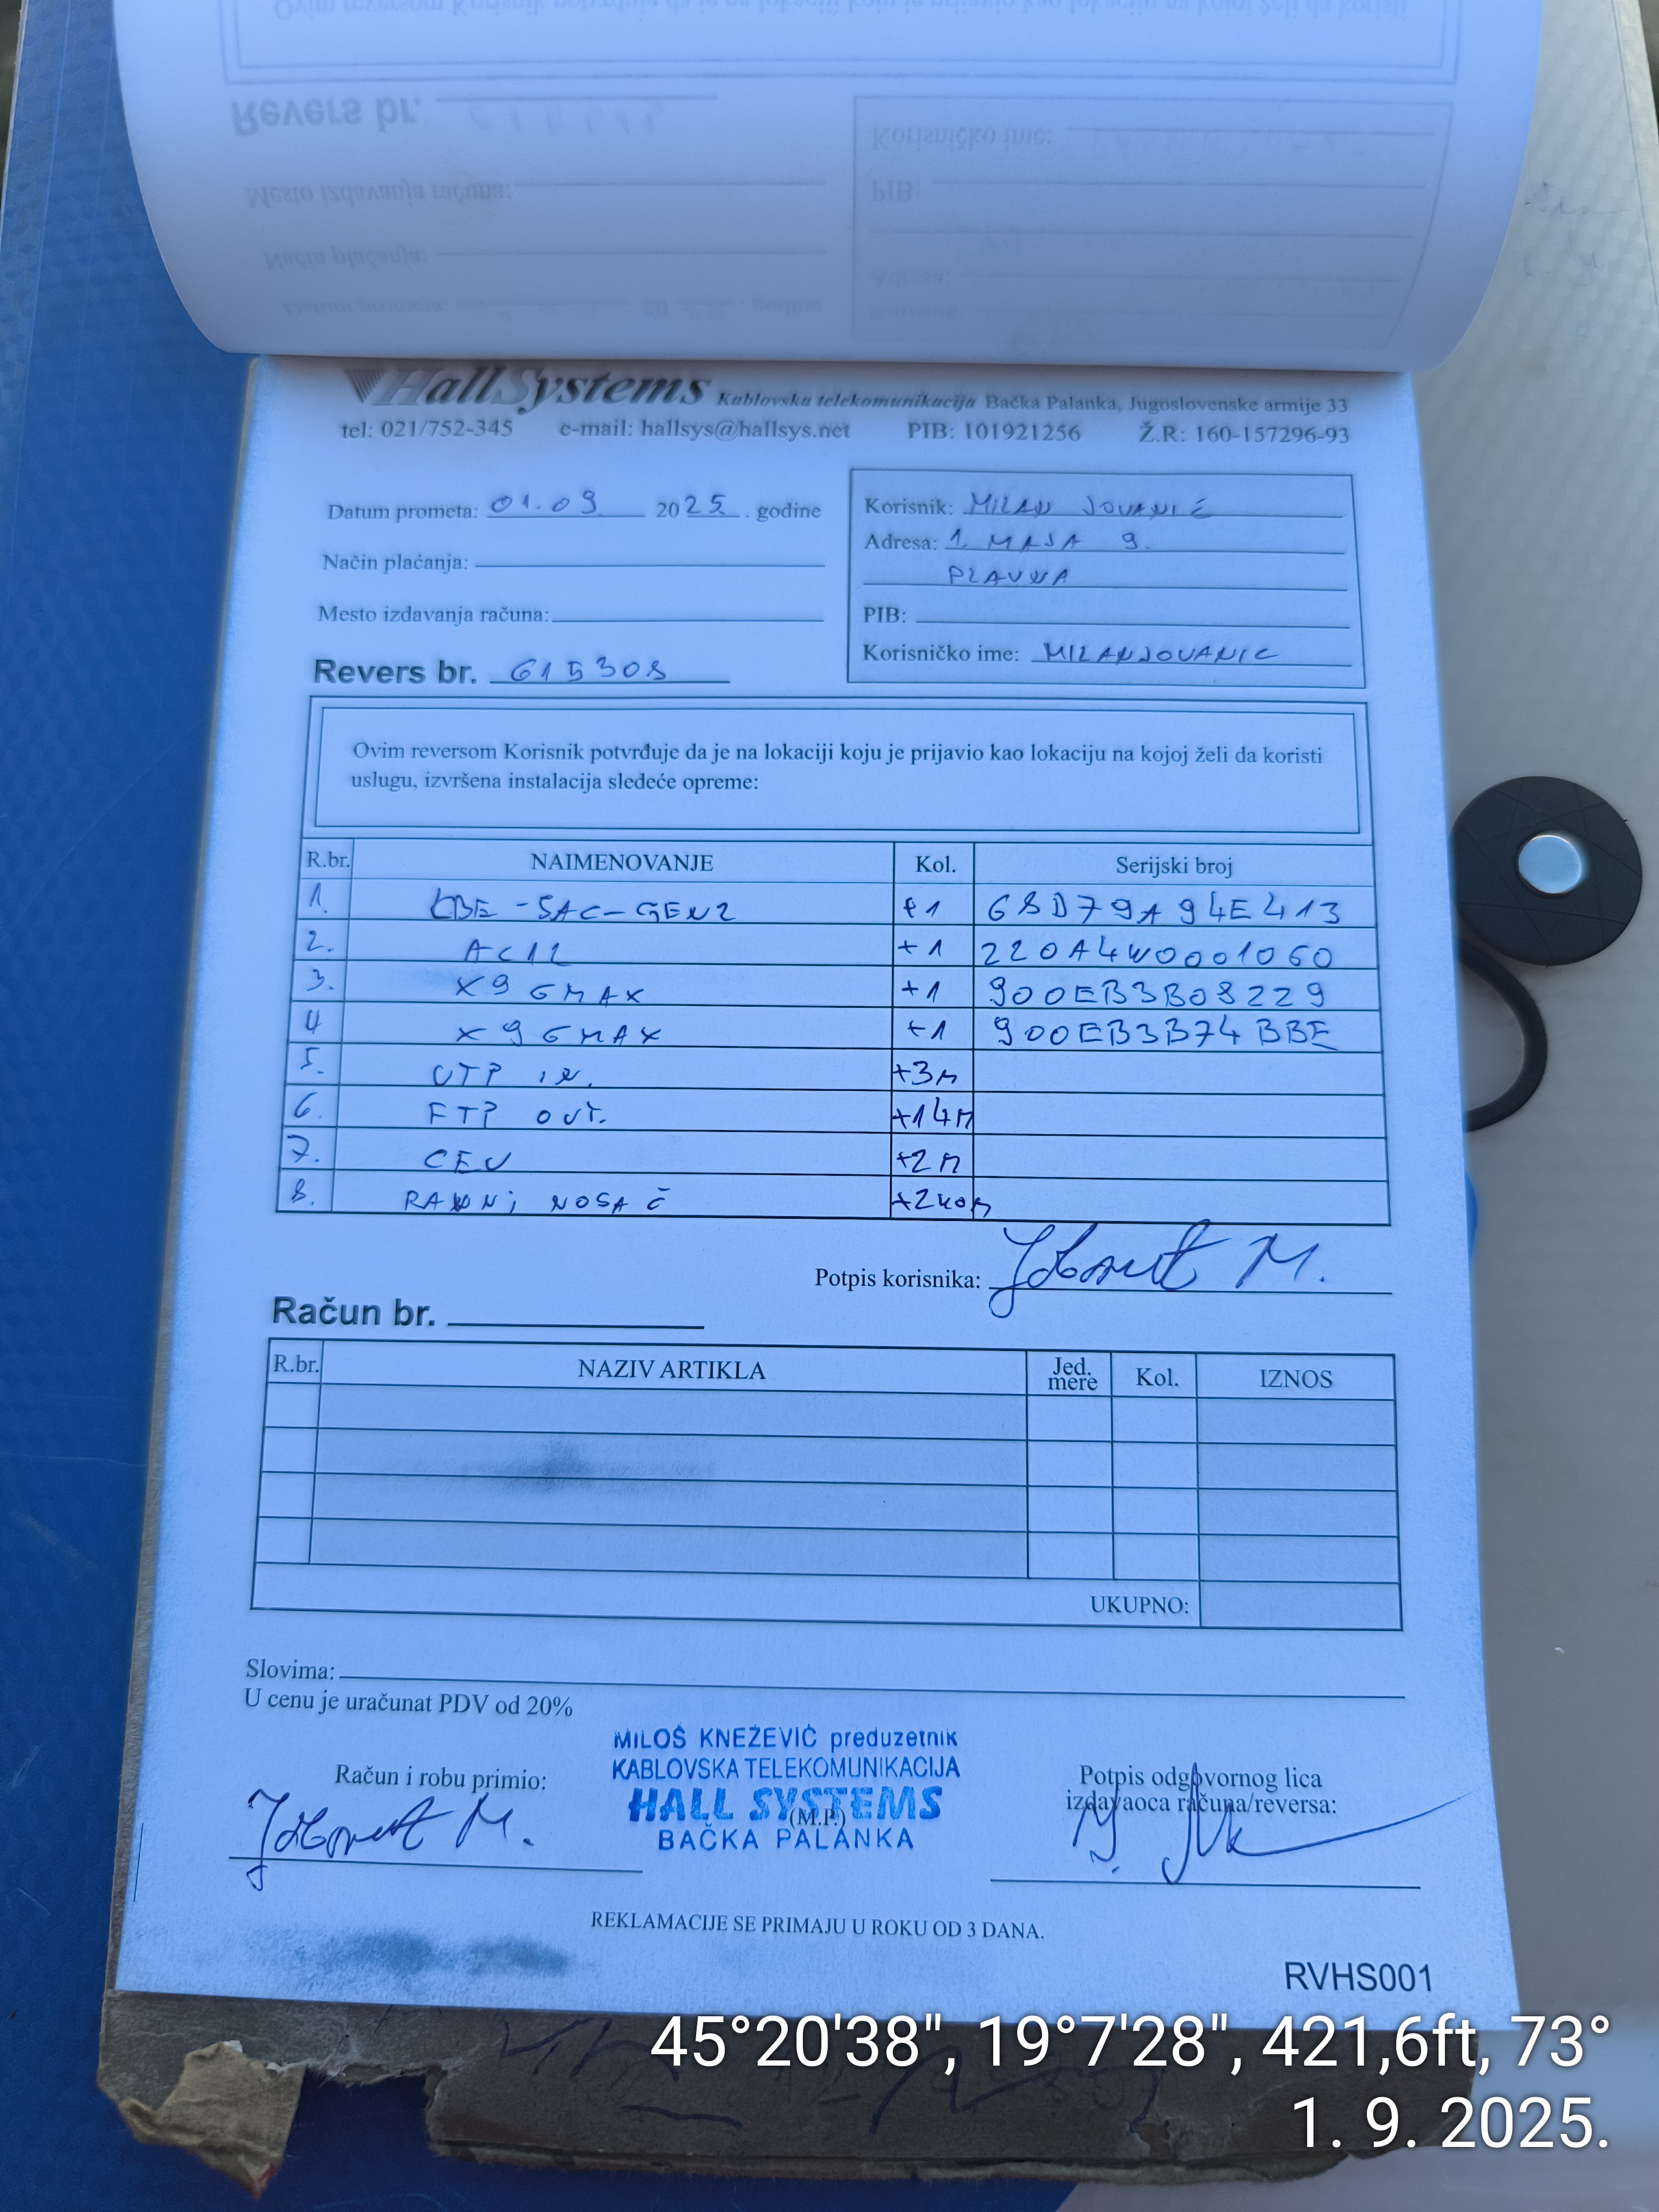 HallSystems Kablovska telekomunikacija Bačka Palanka, Jugoslovenske armije 33
tel: 021/752-345 e-mail: hallsys@hallsys.net PIB: 101921256 Ž.R: 160-157296-93
Datum prometa: 01.09 2025. godine
Način plaćanja:
Mesto izdavanja računa:
Revers br. 615308
Korisnik: MILAN JOVANIĆ
Adresa: 1. MAJA 9.
PLAVNA
PIB:
Korisničko ime: MILANJOVANIC
Ovim reversom Korisnik potvrđuje da je na lokaciji koju je prijavio kao lokaciju na kojoj želi da koristi
uslugu, izvršena instalacija sledeće opreme:
R.br. NAIMENOVANJE Kol. Serijski broj
1. LBE-5AC-GEN2 +1 68D79A94E413
2. AC12 +1 220A4W0001060
3. X9 GMAX +1 900EB3B08229
4 X9 GMAX +1 900EB3B74BBE
5. UTP in. +3m
6. FTP out. +14m
7. CEV +2m
8. RAVNi NOSAČ +2kom
Potpis korisnika:
Račun br.
R.br. NAZIV ARTIKLA Jed. mere Kol. IZNOS
UKUPNO:
Slovima:
U cenu je uračunat PDV od 20%
MILOŠ KNEŽEVIĆ preduzetnik
KABLOVSKA TELEKOMUNIKACIJA
HALL SYSTEMS
(M.P.)
BAČKA PALANKA
Račun i robu primio:
Potpis odgovornog lica
izdavaoca računa/reversa:
REKLAMACIJE SE PRIMAJU U ROKU OD 3 DANA.
RVHS001
45°20'38", 19°7'28", 421,6ft, 73°
1. 9. 2025.